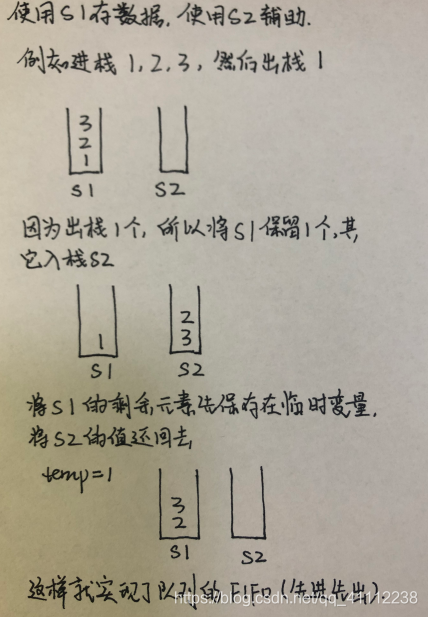 使用S1存数据,使用S2辅助.
例如进栈1,2,3,然后出栈1
3
2
1
S1 S2
因为出栈1个,所以将S1保留1个,其
它入栈S2
2
1 3
S1 S2
将S1的剩余元素先保存在临时变量,
将S2的值还回去,
temp=1
3
2
S1 S2
这样就实现了队列的FIFO(先进先出).
https://blog.csdn.net/qq_44112238